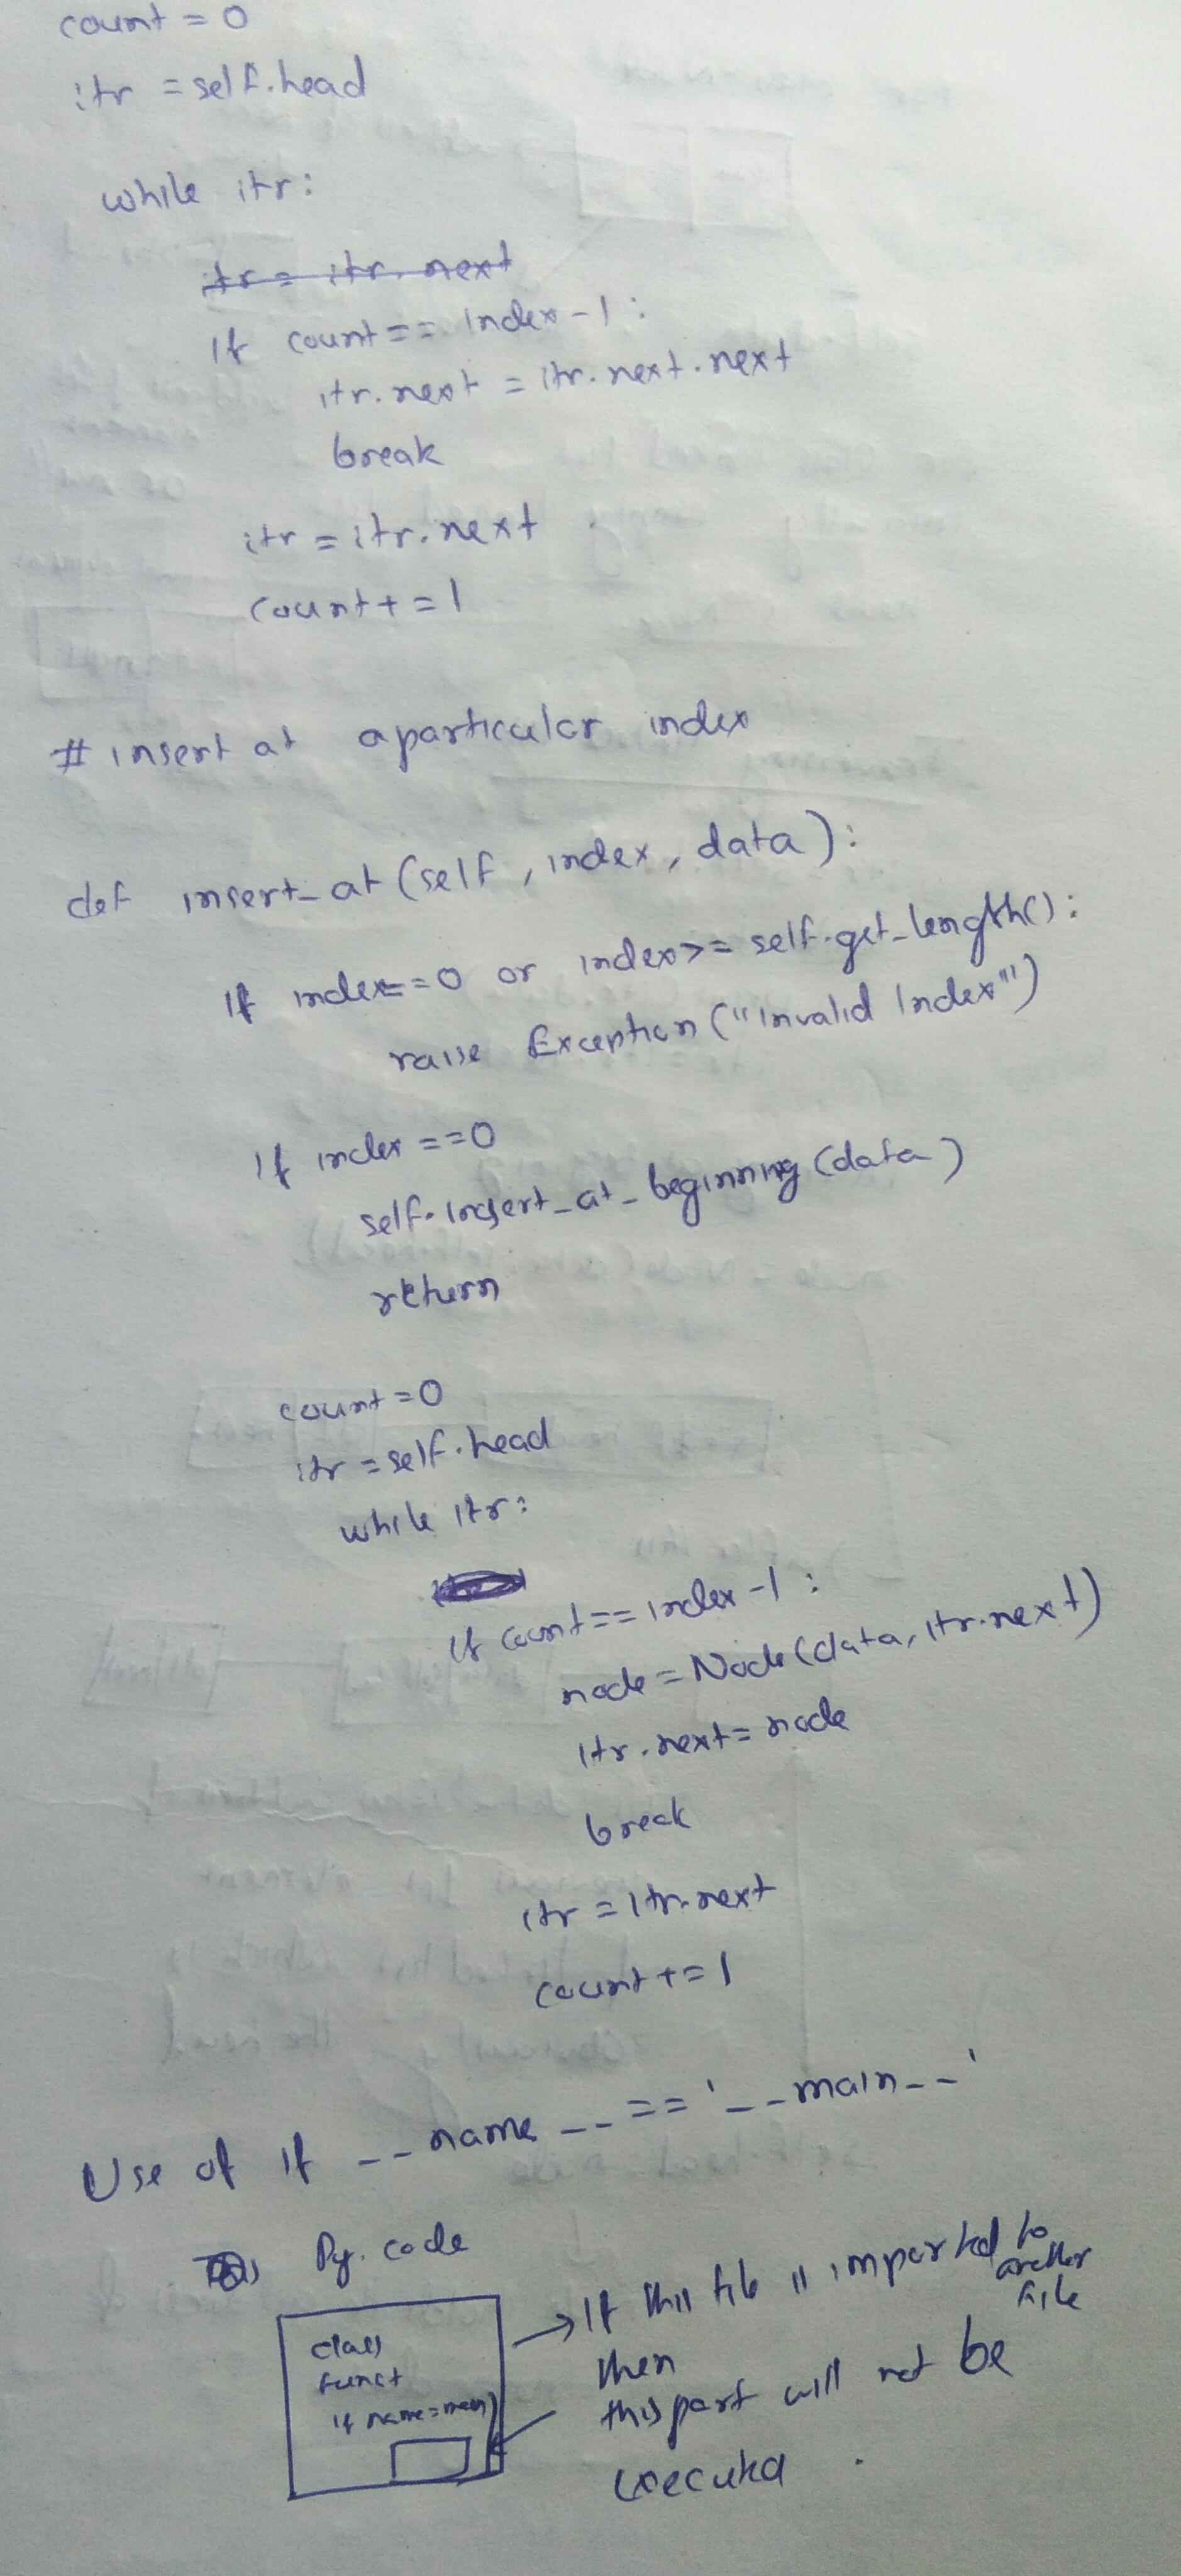 count = 0
itr = self.head
while itr:
itr = itr.next
If count == index-1:
itr.next = itr.next.next
break
itr = itr.next
count+=1
# insert at a particular index
def insert_at (self, index, data):
If index==0 or index>= self.get_length():
raise Exception ("Invalid Index")
If index ==0
self.insert_at_beginning (data)
return
count = 0
itr = self.head
while itr:
If count== index-1:
node = Node (data, itr.next)
itr.next = node
break
itr = itr.next
count+=1
Use of if __name__ == '__main__'
Py. code
class
funct
if name=main
If this file is imported to another file
then
this part will not be
executed.